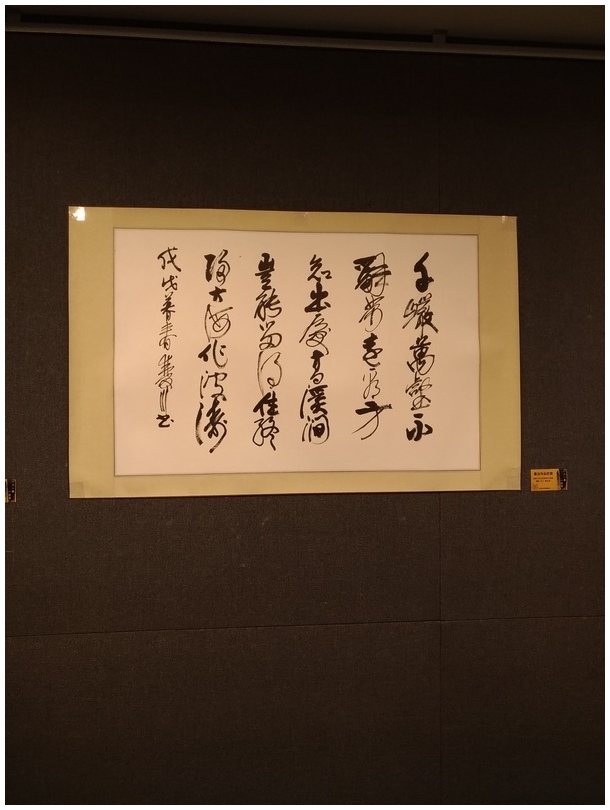 千巖萬壑不
辭勞遠看方
知出處高溪澗
豈能留得住終
歸大海作波濤
戊戌暮春书